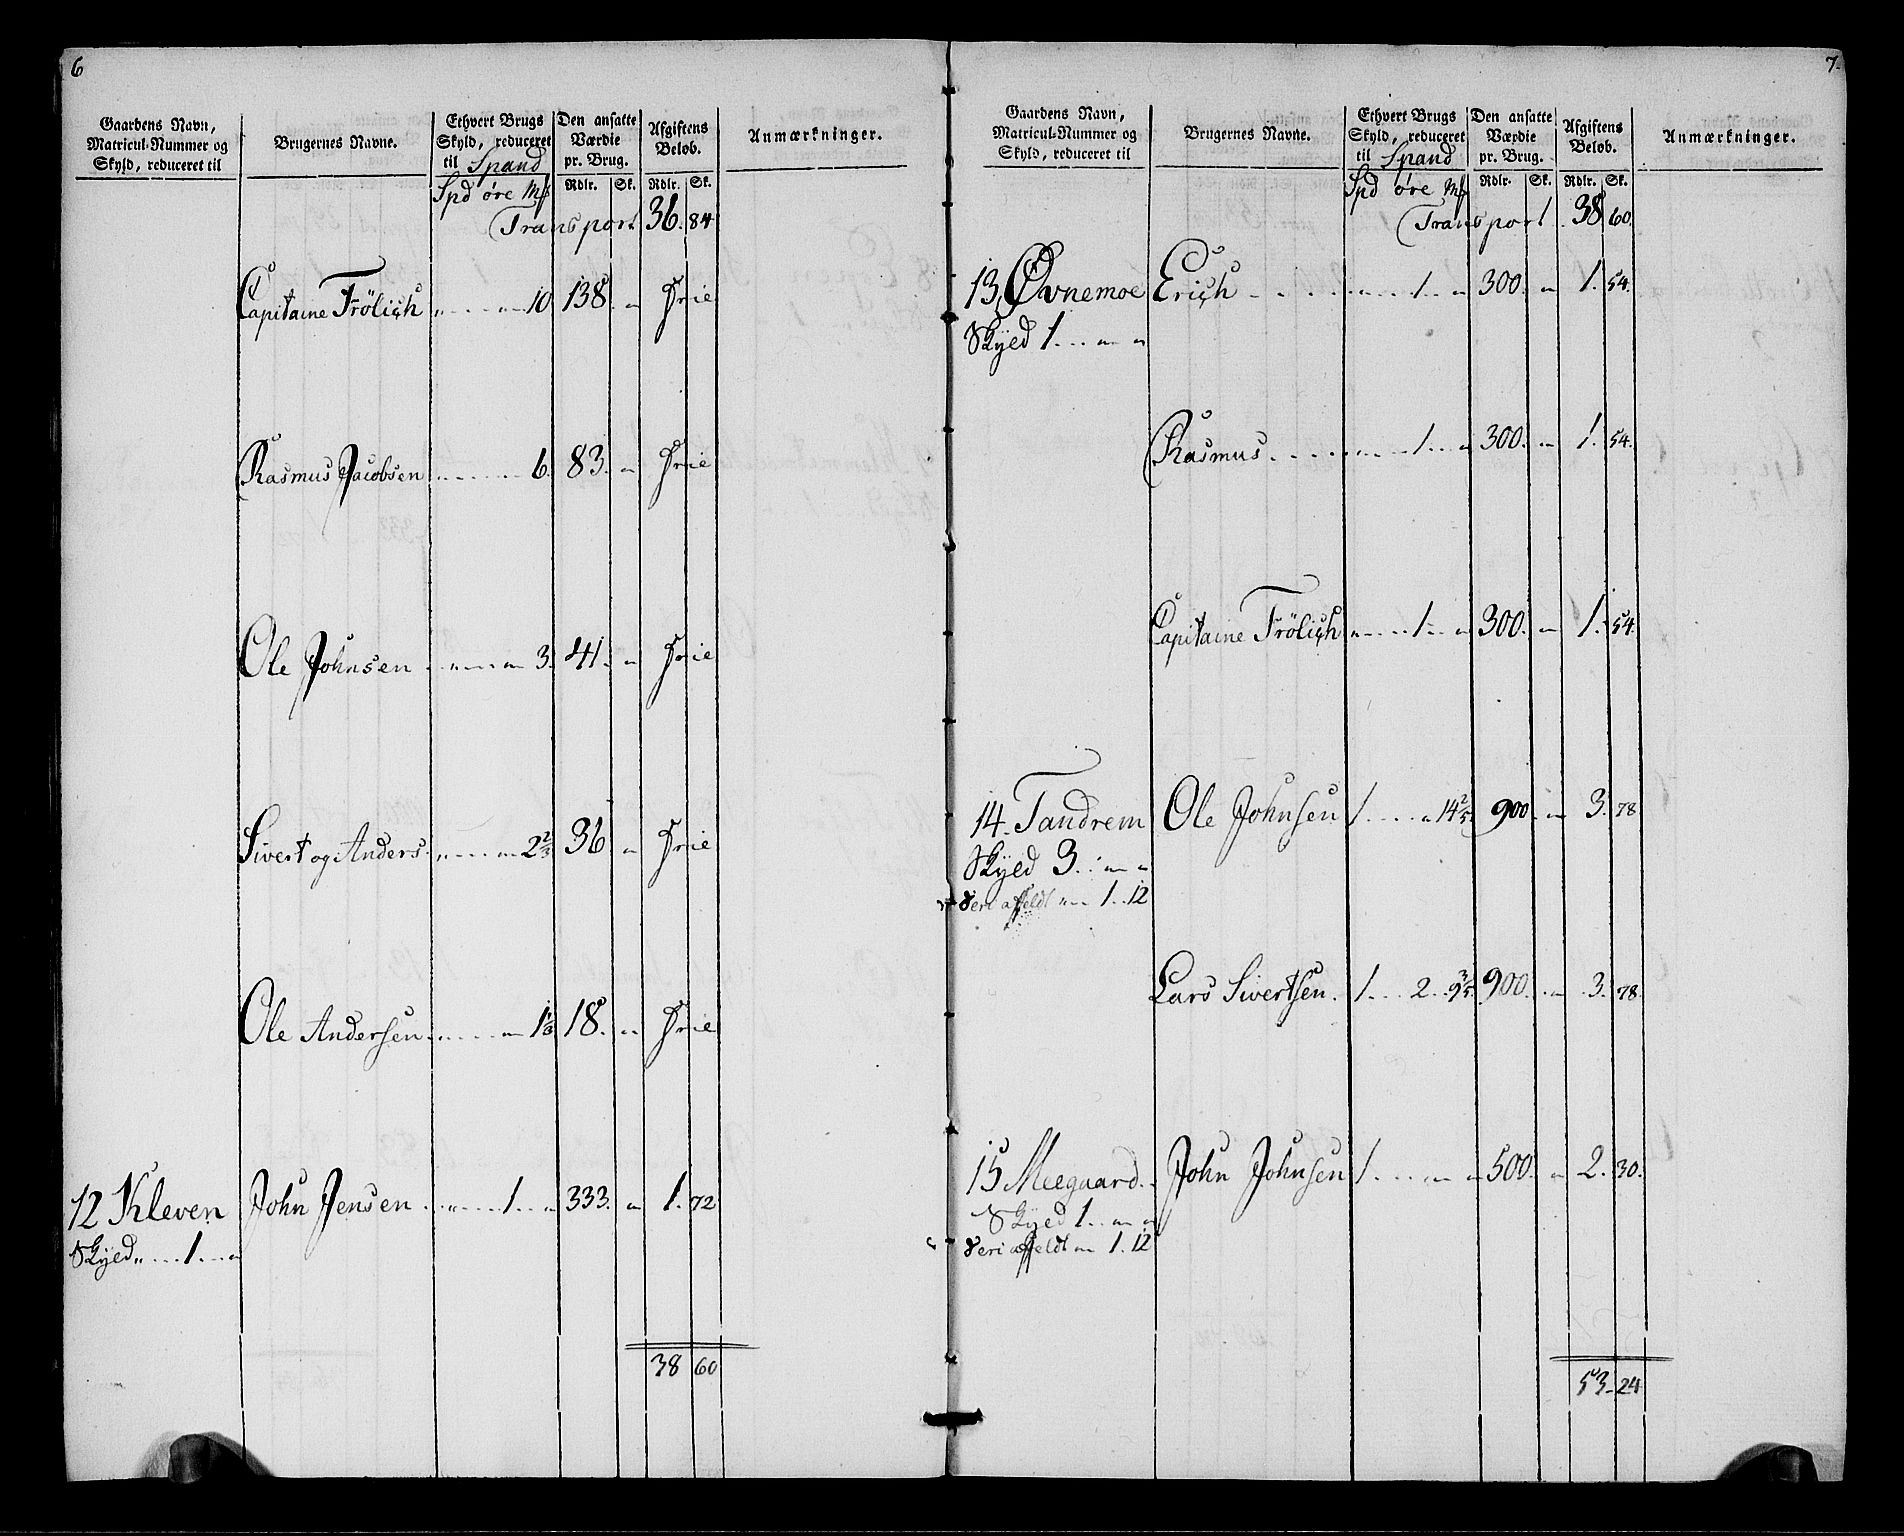 6
Gaardens Navn, Matricul-Nummer og Skyld, reduceret til | Brugernes Navne. | Ethvert Brugs Skyld, reduceret til Spand | Den ansatte Værdie pr. Brug. | Afgiftens Beløb. | Anmærkninger.
Spd øre Mk | Rdlr. Sk. | Rdlr. Sk.
Transport 36. 84
Capitaine Frölich " " 10 138 " Frie
Rasmus Jacobsen 6. 83. " Frie
Ole Johnsen " " 3. 41. " Frie
Sivert og Anders " " 2 2/3 36 " Frie
Ole Andersen " 1 1/3 18. " Frie
12 Kleven John Jensen " 1 " 333. " 1. 72
Skyld " 1 "
38 60
7.
Gaardens Navn, Matricul-Nummer og Skyld, reduceret til | Brugernes Navne. | Ethvert Brugs Skyld, reduceret til Spand | Den ansatte Værdie pr. Brug. | Afgiftens Beløb. | Anmærkninger.
Spd øre Mk | Rdlr. Sk. | Rdlr. Sk.
Transport 38 60.
13, Øvnemoe Erich 1 " 300. " 1. 54.
Skyld 1 " "
Rasmus 1 " 300. " 1. 54.
Capitaine Frölich " 1 " 300. " 1. 54.
14. Tandrem Ole Johnsen 1 " 14 2/5 900 " 3. 78
Skyld 3. " "
deri affeldt " 1. 12
Lars Sivertsen. 1 2 9 3/5 900. " 3. 78.
15 Meegaard John Johnsen 1 " " 500. " 2. 30.
Skyld 1 " "
deri affeldt " 1. 12
53. 24